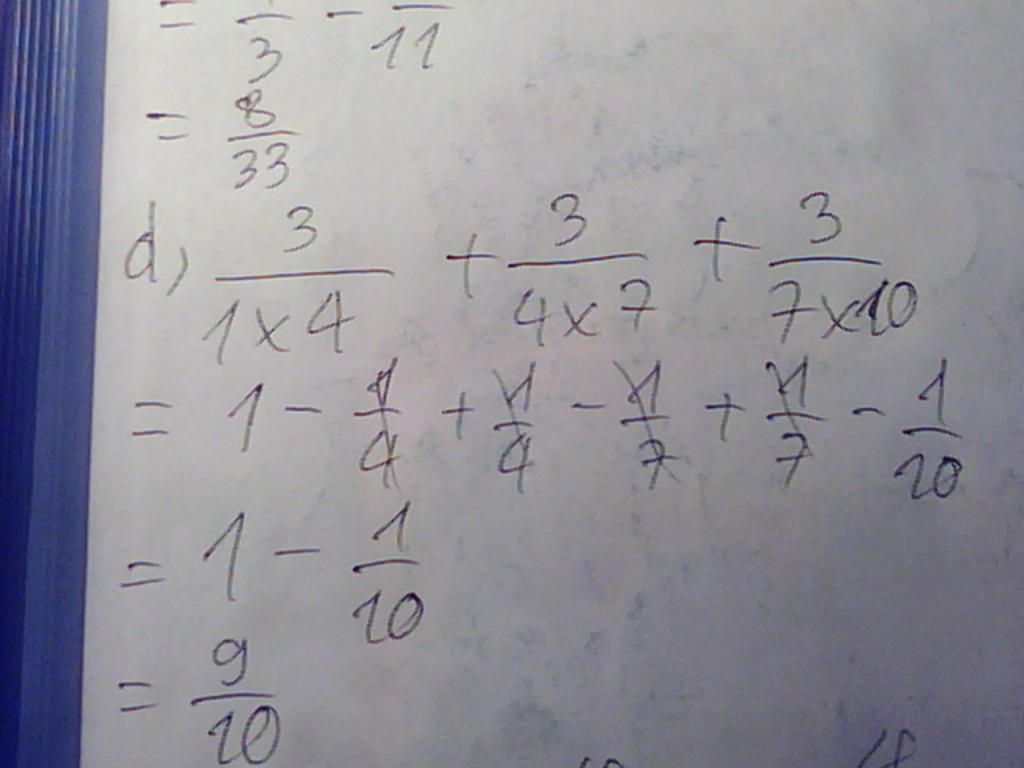 = 1/3 - 1/11
= 8/33
d, 3/(1x4) + 3/(4x7) + 3/(7x10)
= 1 - 1/4 + 1/4 - 1/7 + 1/7 - 1/10
= 1 - 1/10
= 9/10